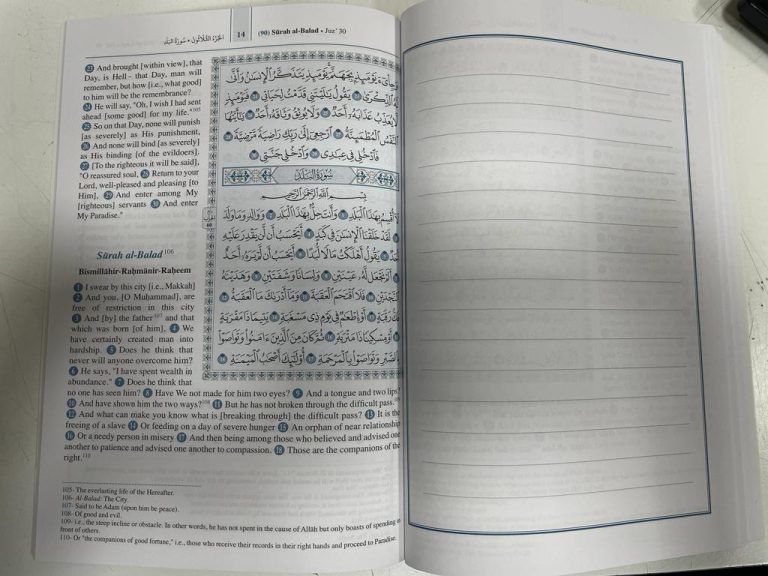 الجُزْءُ الثَّلَاثُونَ • سُورَةُ البَلَدِ
14
(90) Sūrah al-Balad • Juz' 30
23 And brought [within view], that
Day, is Hell - that Day, man will
remember, but how [i.e., what good]
to him will be the remembrance?
24 He will say, "Oh, I wish I had sent
ahead [some good] for my life."105
25 So on that Day, none will punish
[as severely] as His punishment,
26 And none will bind [as severely]
as His binding [of the evildoers].
27 [To the righteous it will be said],
"O reassured soul, 28 Return to your
Lord, well-pleased and pleasing [to
Him], 29 And enter among My
[righteous] servants 30 And enter
My Paradise."
يَوْمَئِذٍ بِجَهَنَّمَ يَوْمَئِذٍ يَتَذَكَّرُ الْإِنسَٰنُ وَأَنَّىٰ
الذِّكْرَىٰ ٢٣ يَقُولُ يَٰلَيْتَنِي قَدَّمْتُ لِحَيَاتِي ٢٤ فَيَوْمَئِذٍ
يُعَذِّبُ عَذَابَهُۥٓ أَحَدٌ ٢٥ وَلَا يُوثِقُ وَثَاقَهُۥٓ أَحَدٌ ٢٦ يَٰٓأَيَّتُهَا
النَّفْسُ الْمُطْمَئِنَّةُ ٢٧ ارْجِعِىٓ إِلَىٰ رَبِّكِ رَاضِيَةً مَّرْضِيَّةً ٢٨
فَادْخُلِى فِى عِبَٰدِى ٢٩ وَادْخُلِى جَنَّتِى ٣٠
سُورَةُ الْبَلَدِ
بِسْمِ اللَّهِ الرَّحْمَٰنِ الرَّحِيمِ
أُقْسِمُ بِهَٰذَا الْبَلَدِ ١ وَأَنتَ حِلٌّۢ بِهَٰذَا الْبَلَدِ ٢ وَوَالِدٍ وَمَا وَلَدَ
٣ لَقَدْ خَلَقْنَا الْإِنسَٰنَ فِى كَبَدٍ ٤ أَيَحْسَبُ أَن لَّن يَقْدِرَ عَلَيْهِ
أَحَدٌ ٥ يَقُولُ أَهْلَكْتُ مَالًا لُّبَدًا ٦ أَيَحْسَبُ أَن لَّمْ يَرَهُۥٓ أَحَدٌ
٧ أَلَمْ نَجْعَل لَّهُۥ عَيْنَيْنِ ٨ وَلِسَانًا وَشَفَتَيْنِ ٩ وَهَدَيْنَٰهُ
النَّجْدَيْنِ ١٠ فَلَا اقْتَحَمَ الْعَقَبَةَ ١١ وَمَآ أَدْرَىٰكَ مَا الْعَقَبَةُ ١٢
فَكُّ رَقَبَةٍ ١٣ أَوْ إِطْعَٰمٌ فِى يَوْمٍ ذِى مَسْغَبَةٍ ١٤ يَتِيمًا ذَا مَقْرَبَةٍ
١٥ أَوْ مِسْكِينًا ذَا مَتْرَبَةٍ ١٦ ثُمَّ كَانَ مِنَ الَّذِينَ ءَامَنُوا۟ وَتَوَاصَوْا۟
بِالصَّبْرِ وَتَوَاصَوْا۟ بِالْمَرْحَمَةِ ١٧ أُو۟لَٰٓئِكَ أَصْحَٰبُ الْمَيْمَنَةِ ١٨
Sūrah al-Balad 106
Bismillāhir-Raḥmānir-Raḥeem
1 I swear by this city [i.e., Makkah]
2 And you, [O Muḥammad], are
free of restriction in this city
3 And [by] the father107 and that
which was born [of him], 4 We
have certainly created man into
hardship. 5 Does he think that
never will anyone overcome him?
6 He says, "I have spent wealth in
abundance." 7 Does he think that
no one has seen him? 8 Have We not made for him two eyes? 9 And a tongue and two lips?
10 And have shown him the two ways?108 11 But he has not broken through the difficult pass.109
12 And what can make you know what is [breaking through] the difficult pass? 13 It is the
freeing of a slave 14 Or feeding on a day of severe hunger 15 An orphan of near relationship
16 Or a needy person in misery 17 And then being among those who believed and advised one
another to patience and advised one another to compassion. 18 Those are the companions of the
right.110
105- The everlasting life of the Hereafter.
106- Al-Balad: The City.
107- Said to be Adam (upon him be peace).
108- Of good and evil.
109- i.e., the steep incline or obstacle. In other words, he has not spent in the cause of Allāh but only boasts of spending in
front of others.
110- Or "the companions of good fortune," i.e., those who receive their records in their right hands and proceed to Paradise.